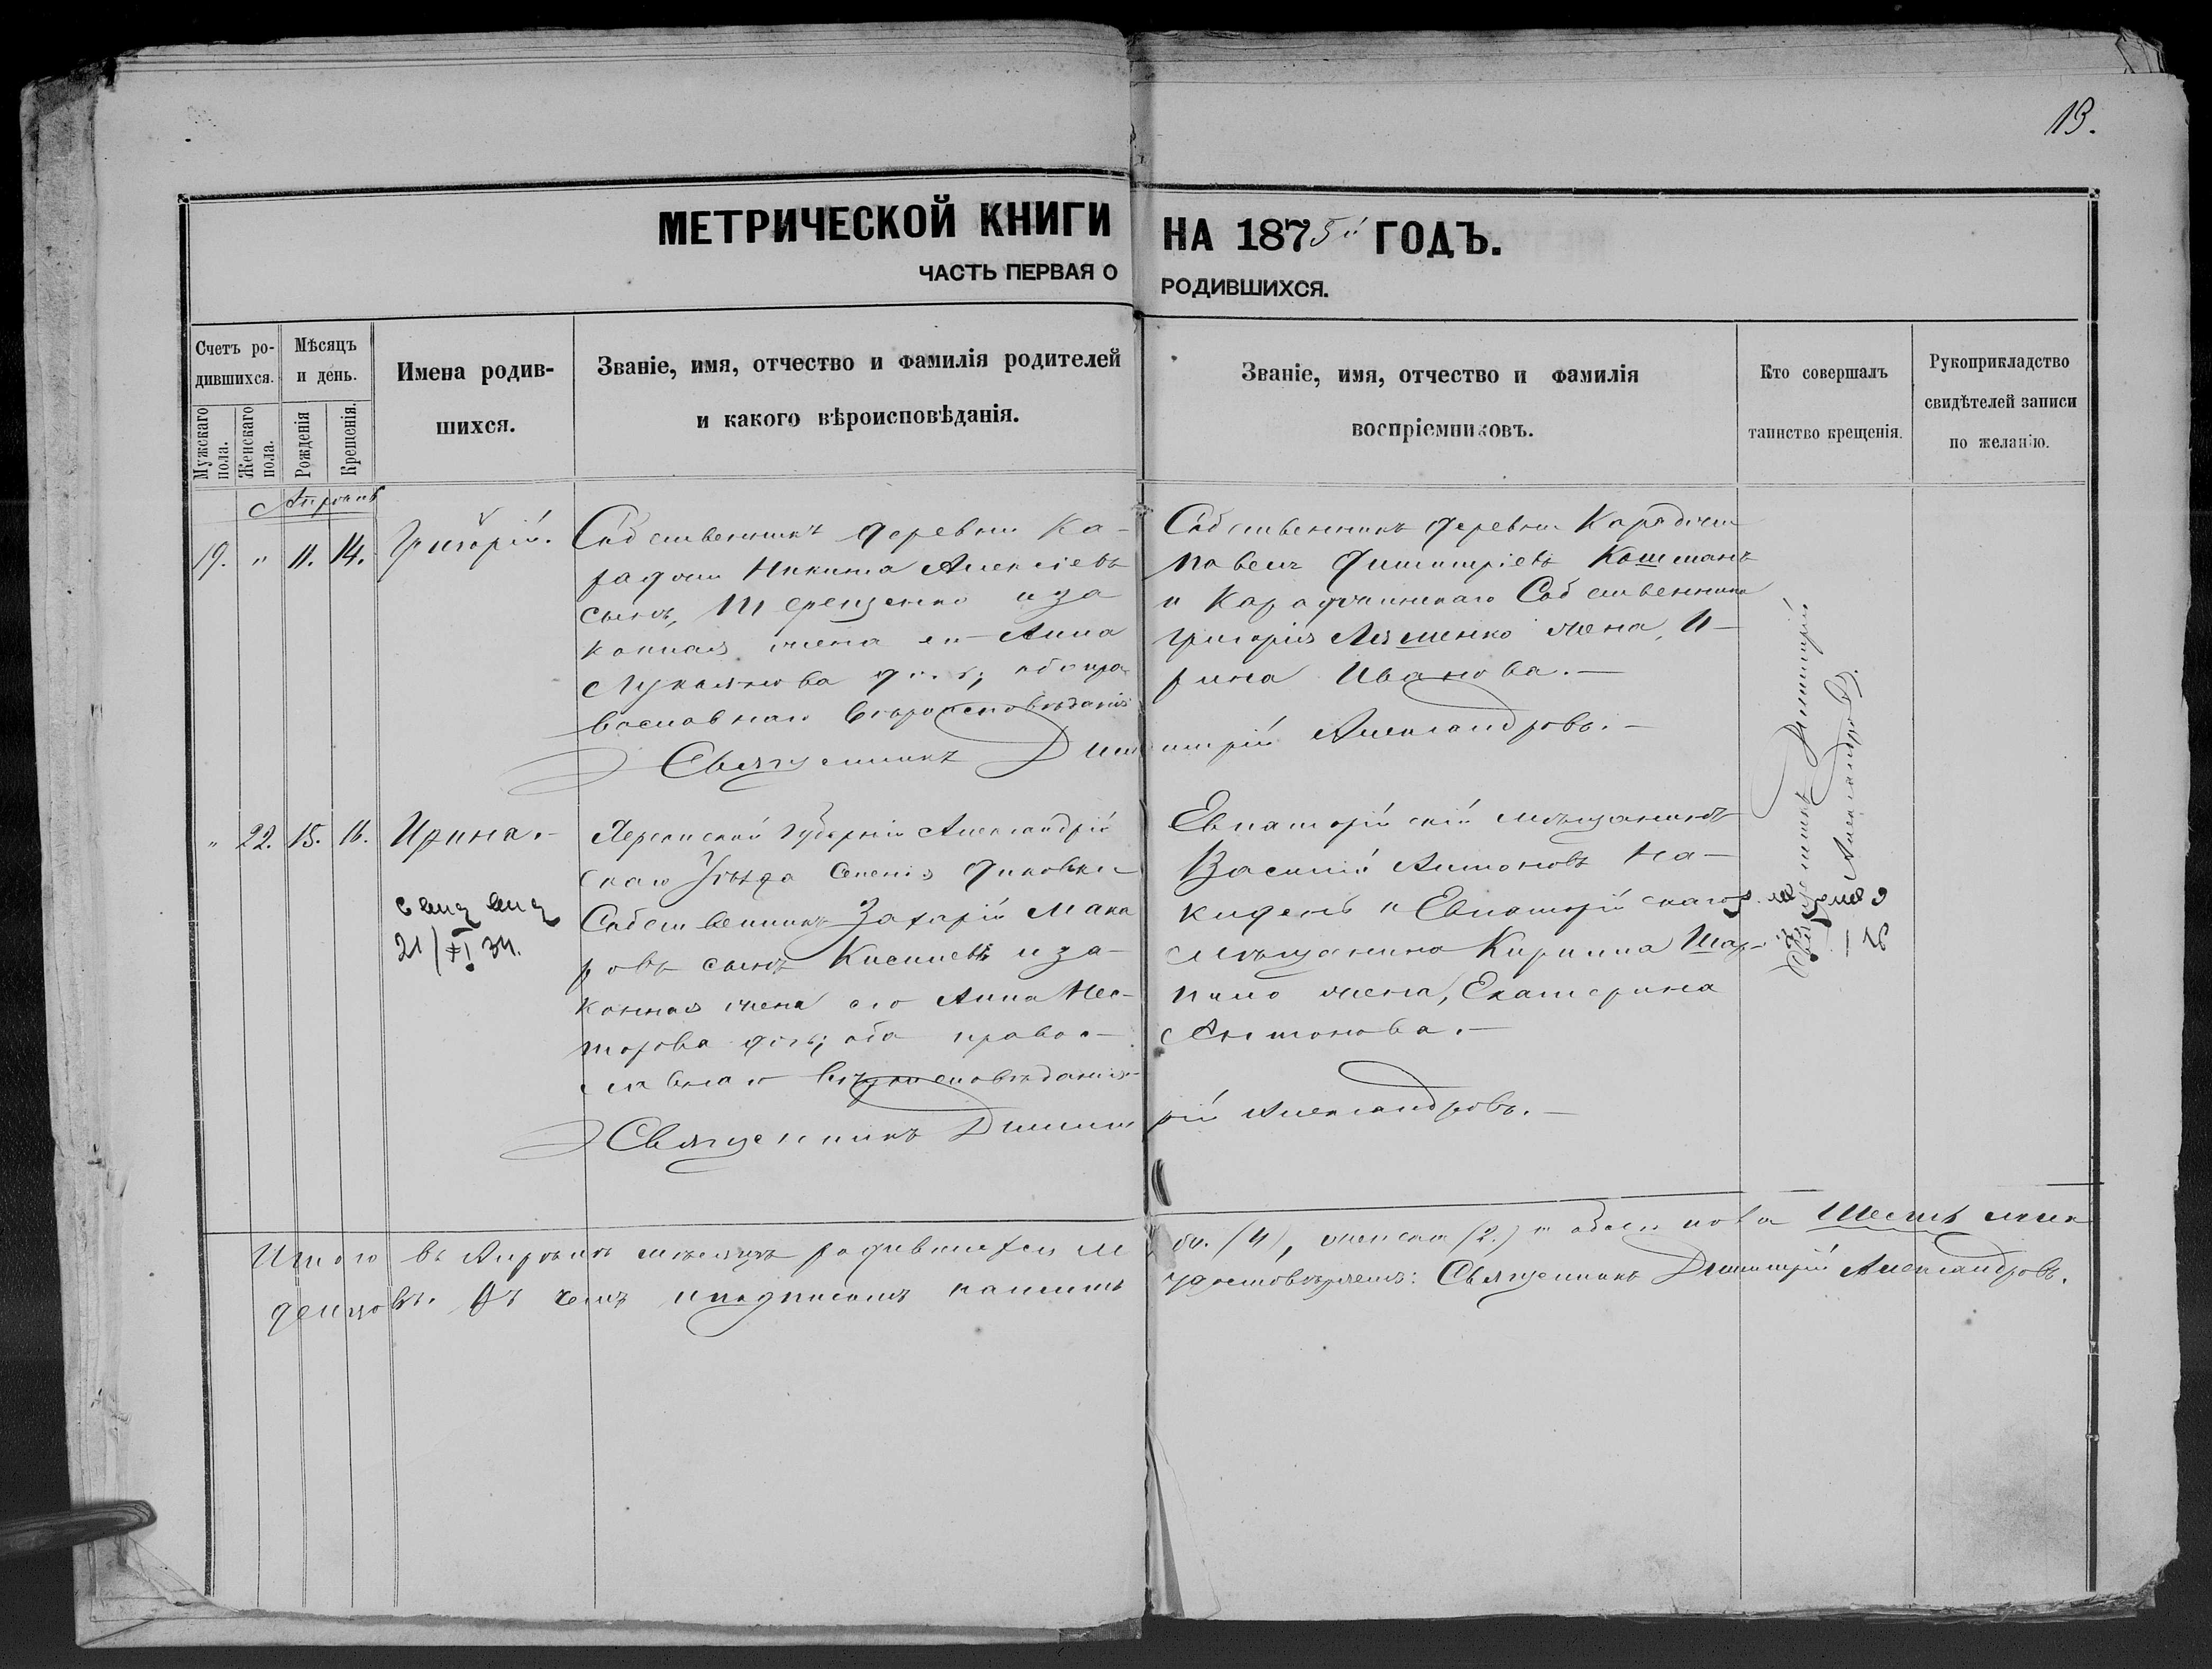 13.
МЕТРИЧЕСКОЙ КНИГИ НА 1875й ГОДЪ.
ЧАСТЬ ПЕРВАЯ О РОДИВШИХСЯ.
Счетъ ро-
дившихся.
Мужскаго пола.
Женскаго пола.
Мѣсяцъ
и день.
Рожденія
Крещенія.
Имена родив-
шихся.
Званіе, имя, отчество и фамилія родителей
и какого вѣроисповѣданія.
Званіе, имя, отчество и фамилія
воспріемниковъ.
Кто совершалъ
таинство крещенія.
Рукоприкладство
свидѣтелей записи
по желанію.
Апрѣль
19. " 11. 14. Григорій.
Собственникъ деревни Ка-
Никита Алексіевъ
сынъ, Терещенко и за
конная жена его Анна
Лукьянова обо пра
вославнаго вѣроисповѣданія
Собственникъ деревни
Павелъ Димитріевъ Кошманъ
и Собственника
Григорія Ляшенко жена, И-
рина Иванова.-
Священникъ Димитрій Александровъ.-
" 22. 15. 16. Ирина.-
21/XI 34.
Херсонской Губерніи Александрій
скаго Уѣзда Селенія
Собственникъ Захарій Мака
ровъ сынъ и за-
конная жена его Анна Нес-
торова оба правос-
лавнаго вѣроисповѣданія
Евпаторійскій мѣщанинъ
Василій Антоновъ На-
и Евпаторійскаго
мѣщанина Кирилла Шар-
пило жена, Екатерина
Антонова.-
Священникъ Димитрій Александровъ.-
Священникъ Димитрій
Александровъ.
Итого въ Апрѣлѣ мѣсяцѣ родившихся м (4), женска (2.) и обоего пола Шесть мла
денцовъ. Въ чемъ и подписомъ удостовѣряемъ: Священникъ Димитрій Александровъ.